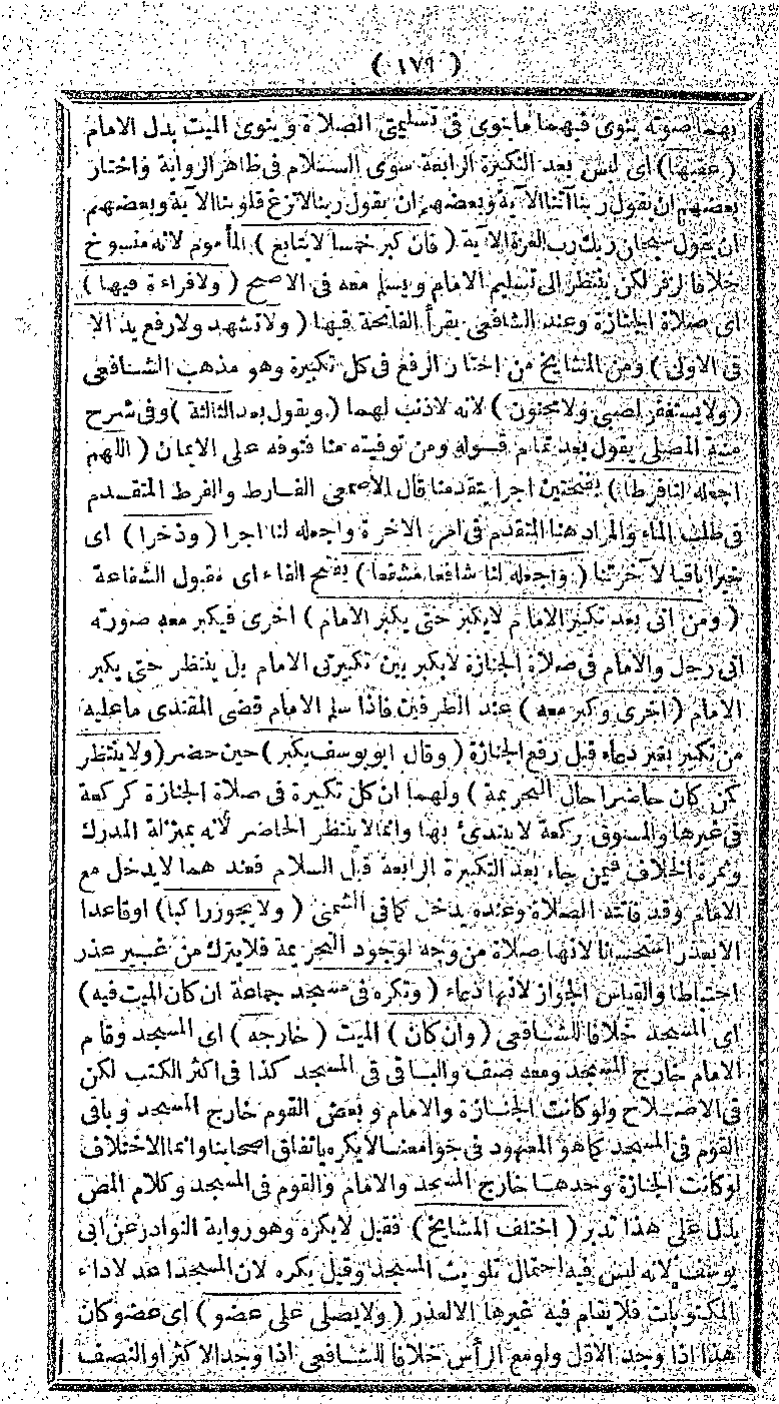 ( ١٧٩ )
بهما صوته ينوى فيهما ما ينوى فى تسليمتى الصلاة وينوى الميت بدل الامام
( عقيبها ) اى ليس بعد التكبيرة الرابعة سوى السلام فى ظاهر الرواية واختار
بعضهم ان يقول ربنا آتنا الآية وبعضهم ان يقول ربنا لا تزغ قلوبنا الآية وبعضهم
ان يقول سبحان ربك رب العزة الآية ( فان كبر خمسا لا يتابع ) المأموم لانه منسوخ
خلافا لزفر لكن ينتظر الى تسليم الامام ويسلم معه فى الاصح ( ولا قراءة فيها )
اى صلاة الجنازة وعند الشافعى يقرأ الفاتحة فيها ( ولا تشهد ولا رفع يد الا
فى الاولى ) ومن المشايخ من اختار الرفع فى كل تكبيرة وهو مذهب الشافعى
( ولا يستغفر لصبى ولا مجنون ) لانه لا ذنب لهما ( ويقول بعد الثالثة ) وفى شرح
منية المصلى يقول بعد تمام قوله ومن توفيته منا فتوفه على الايمان ( اللهم
اجعله لنا فرطا ) بفتحتين اجرا يتقدمنا قال الاصمعى الفارط والفرط المتقدم
فى طلب الماء والمراد هنا المتقدم فى امر الاخرة واجعله لنا اجرا ( وذخرا ) اى
خيرا باقيا لآخرتنا ( واجعله لنا شافعا مشفعا ) بفتح الفاء اى مقبول الشفاعة
( ومن اتى بعد تكبير الامام لا يكبر حتى يكبر الامام ) اخرى فيكبر معه صورته
اتى رجل والامام فى صلاة الجنازة لا يكبر بين تكبيرتى الامام بل ينتظر حتى يكبر
الامام ( اخرى وكبر معه ) عند الطرفين فاذا سلم الامام قضى المقتدى ما عليه
من تكبير بغير دعاء قبل رفع الجنازة ( وقال ابو يوسف يكبر ) حين حضر ( ولا ينتظر
كمن كان حاضرا حال التحريمة ) ولهما ان كل تكبيرة فى صلاة الجنازة كركعة
فى غيرها والمسبوق بركعة لا يبتدئ بها وانما لا ينتظر الحاضر لانه بمنزلة المدرك
وثمرة الخلاف فيمن جاء بعد التكبيرة الرابعة قبل السلام فعندهما لا يدخل مع
الامام وقد فاتته الصلاة وعنده يدخل كما فى الشمنى ( ولا يجوز راكبا ) او قاعدا
الا بعذر استحسانا لانها صلاة من وجه لوجود التحريمة فلا يترك من غير عذر
احتياطا والقياس الجواز لانها دعاء ( وتكره فى مسجد جماعة ان كان الميت فيه )
اى المسجد خلافا للشافعى ( وان كان ) الميت ( خارجه ) اى المسجد وقام
الامام خارج المسجد ومعه صف والباقى فى المسجد كذا فى اكثر الكتب لكن
فى الاصلاح ولو كانت الجنازة والامام وبعض القوم خارج المسجد وباقى
القوم فى المسجد كما هو المعهود فى جوامعنا لا يكره باتفاق اصحابنا وانما الاختلاف
لو كانت الجنازة وحدها خارج المسجد والامام والقوم فى المسجد وكلام المص
يدل على هذا تدبر ( اختلف المشايخ ) فقيل لا يكره وهو رواية النوادر عن ابى
يوسف لانه ليس فيه احتمال تلويث المسجد وقيل يكره لان المسجد اعد لاداء
المكتوبات فلا يقام فيه غيرها الا لعذر ( ولا يصلى على عضو ) اى عضو كان
هذا اذا وجد الاقل ولو مع الرأس خلافا للشافعى اذا وجد الاكثر او النصف